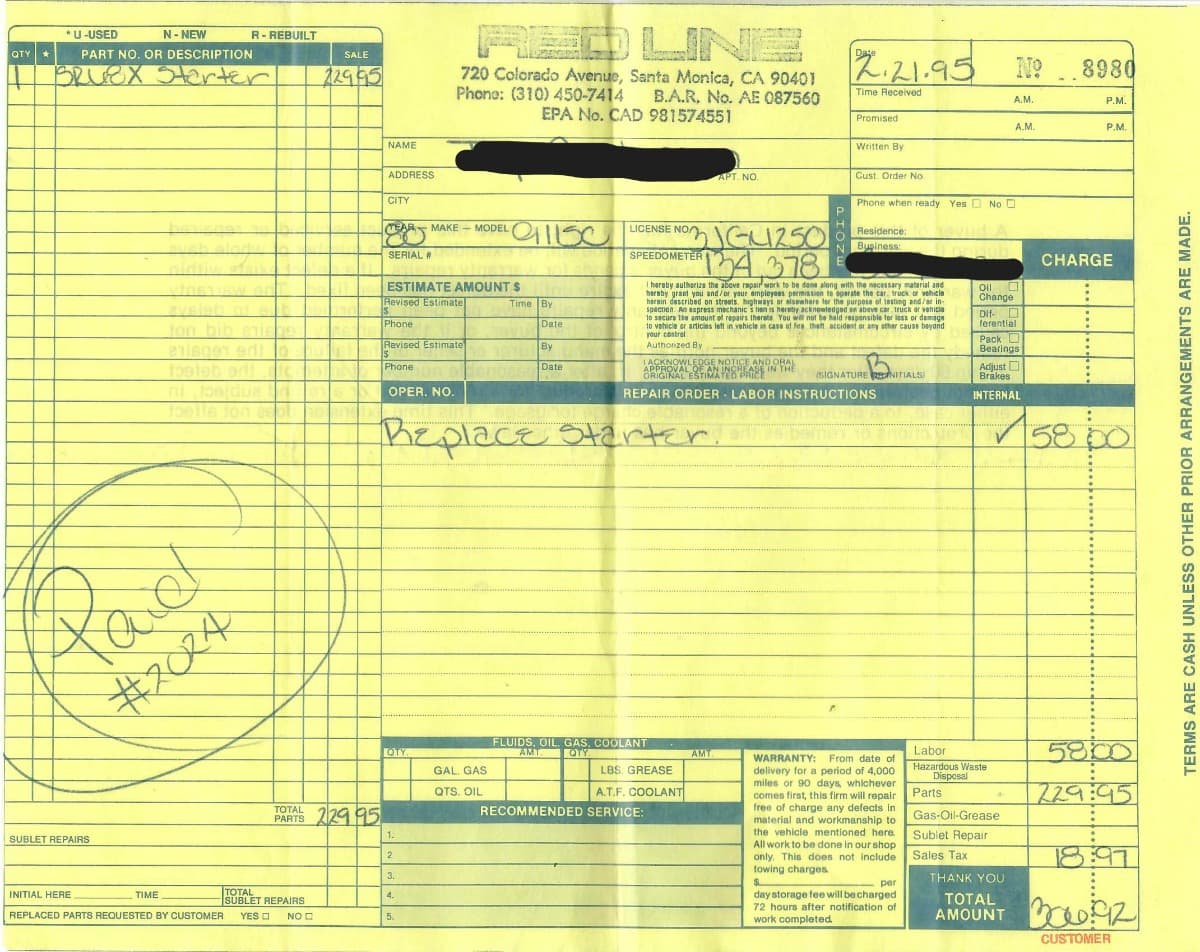 * U -USED N - NEW R - REBUILT
QTY ★ PART NO. OR DESCRIPTION SALE
1 Starter 229 95
RED LINE
720 Colorado Avenue, Santa Monica, CA 90401
Phone: (310) 450-7414 B.A.R. No. AE 087560
EPA No. CAD 981574551
Date
2.21.95 Nº 8980
Time Received A.M. P.M.
Promised A.M. P.M.
Written By
Cust. Order No.
NAME
ADDRESS APT. NO.
CITY
PHONE
Phone when ready Yes ☐ No ☐
Residence:
Business:
YEAR — MAKE — MODEL 80 911SC
LICENSE NO.
SERIAL #
SPEEDOMETER 134,378
CHARGE
ESTIMATE AMOUNT $
Revised Estimate Time By
$
Phone Date
Revised Estimate By
$
Phone Date
I hereby authorize the above repair work to be done along with the necessary material and
hereby grant you and/or your employees permission to operate the car, truck or vehicle
herein described on streets, highways or elsewhere for the purpose of testing and/or in-
spection. An express mechanic's lien is hereby acknowledged on above car, truck or vehicle
to secure the amount of repairs thereto. You will not be held responsible for loss or damage
to vehicle or articles left in vehicle in case of fire, theft, accident or any other cause beyond
your control
Authorized By
I ACKNOWLEDGE NOTICE AND ORAL
APPROVAL OF AN INCREASE IN THE
ORIGINAL ESTIMATED PRICE (SIGNATURE OR INITIALS) B
Oil Change ☐
Dif-ferential ☐
Pack Bearings ☐
Adjust Brakes ☐
OPER. NO. REPAIR ORDER - LABOR INSTRUCTIONS INTERNAL
Replace Starter. ✓ 58 00
Paid
#2024
FLUIDS, OIL, GAS, COOLANT
QTY. AMT. QTY. AMT.
GAL. GAS LBS. GREASE
QTS. OIL A.T.F. COOLANT
RECOMMENDED SERVICE:
1.
2.
3.
4.
5.
WARRANTY: From date of
delivery for a period of 4,000
miles or 90 days, whichever
comes first, this firm will repair
free of charge any defects in
material and workmanship to
the vehicle mentioned here.
All work to be done in our shop
only. This does not include
towing charges.
$ per
day storage fee will be charged
72 hours after notification of
work completed.
Labor 58 00
Hazardous Waste
Disposal
Parts 229 95
Gas-Oil-Grease
Sublet Repair
Sales Tax 18 97
THANK YOU
TOTAL
AMOUNT 306 92
CUSTOMER
TOTAL
PARTS 229 95
SUBLET REPAIRS
INITIAL HERE TIME TOTAL
SUBLET REPAIRS
REPLACED PARTS REQUESTED BY CUSTOMER YES ☐ NO ☐
TERMS ARE CASH UNLESS OTHER PRIOR ARRANGEMENTS ARE MADE.